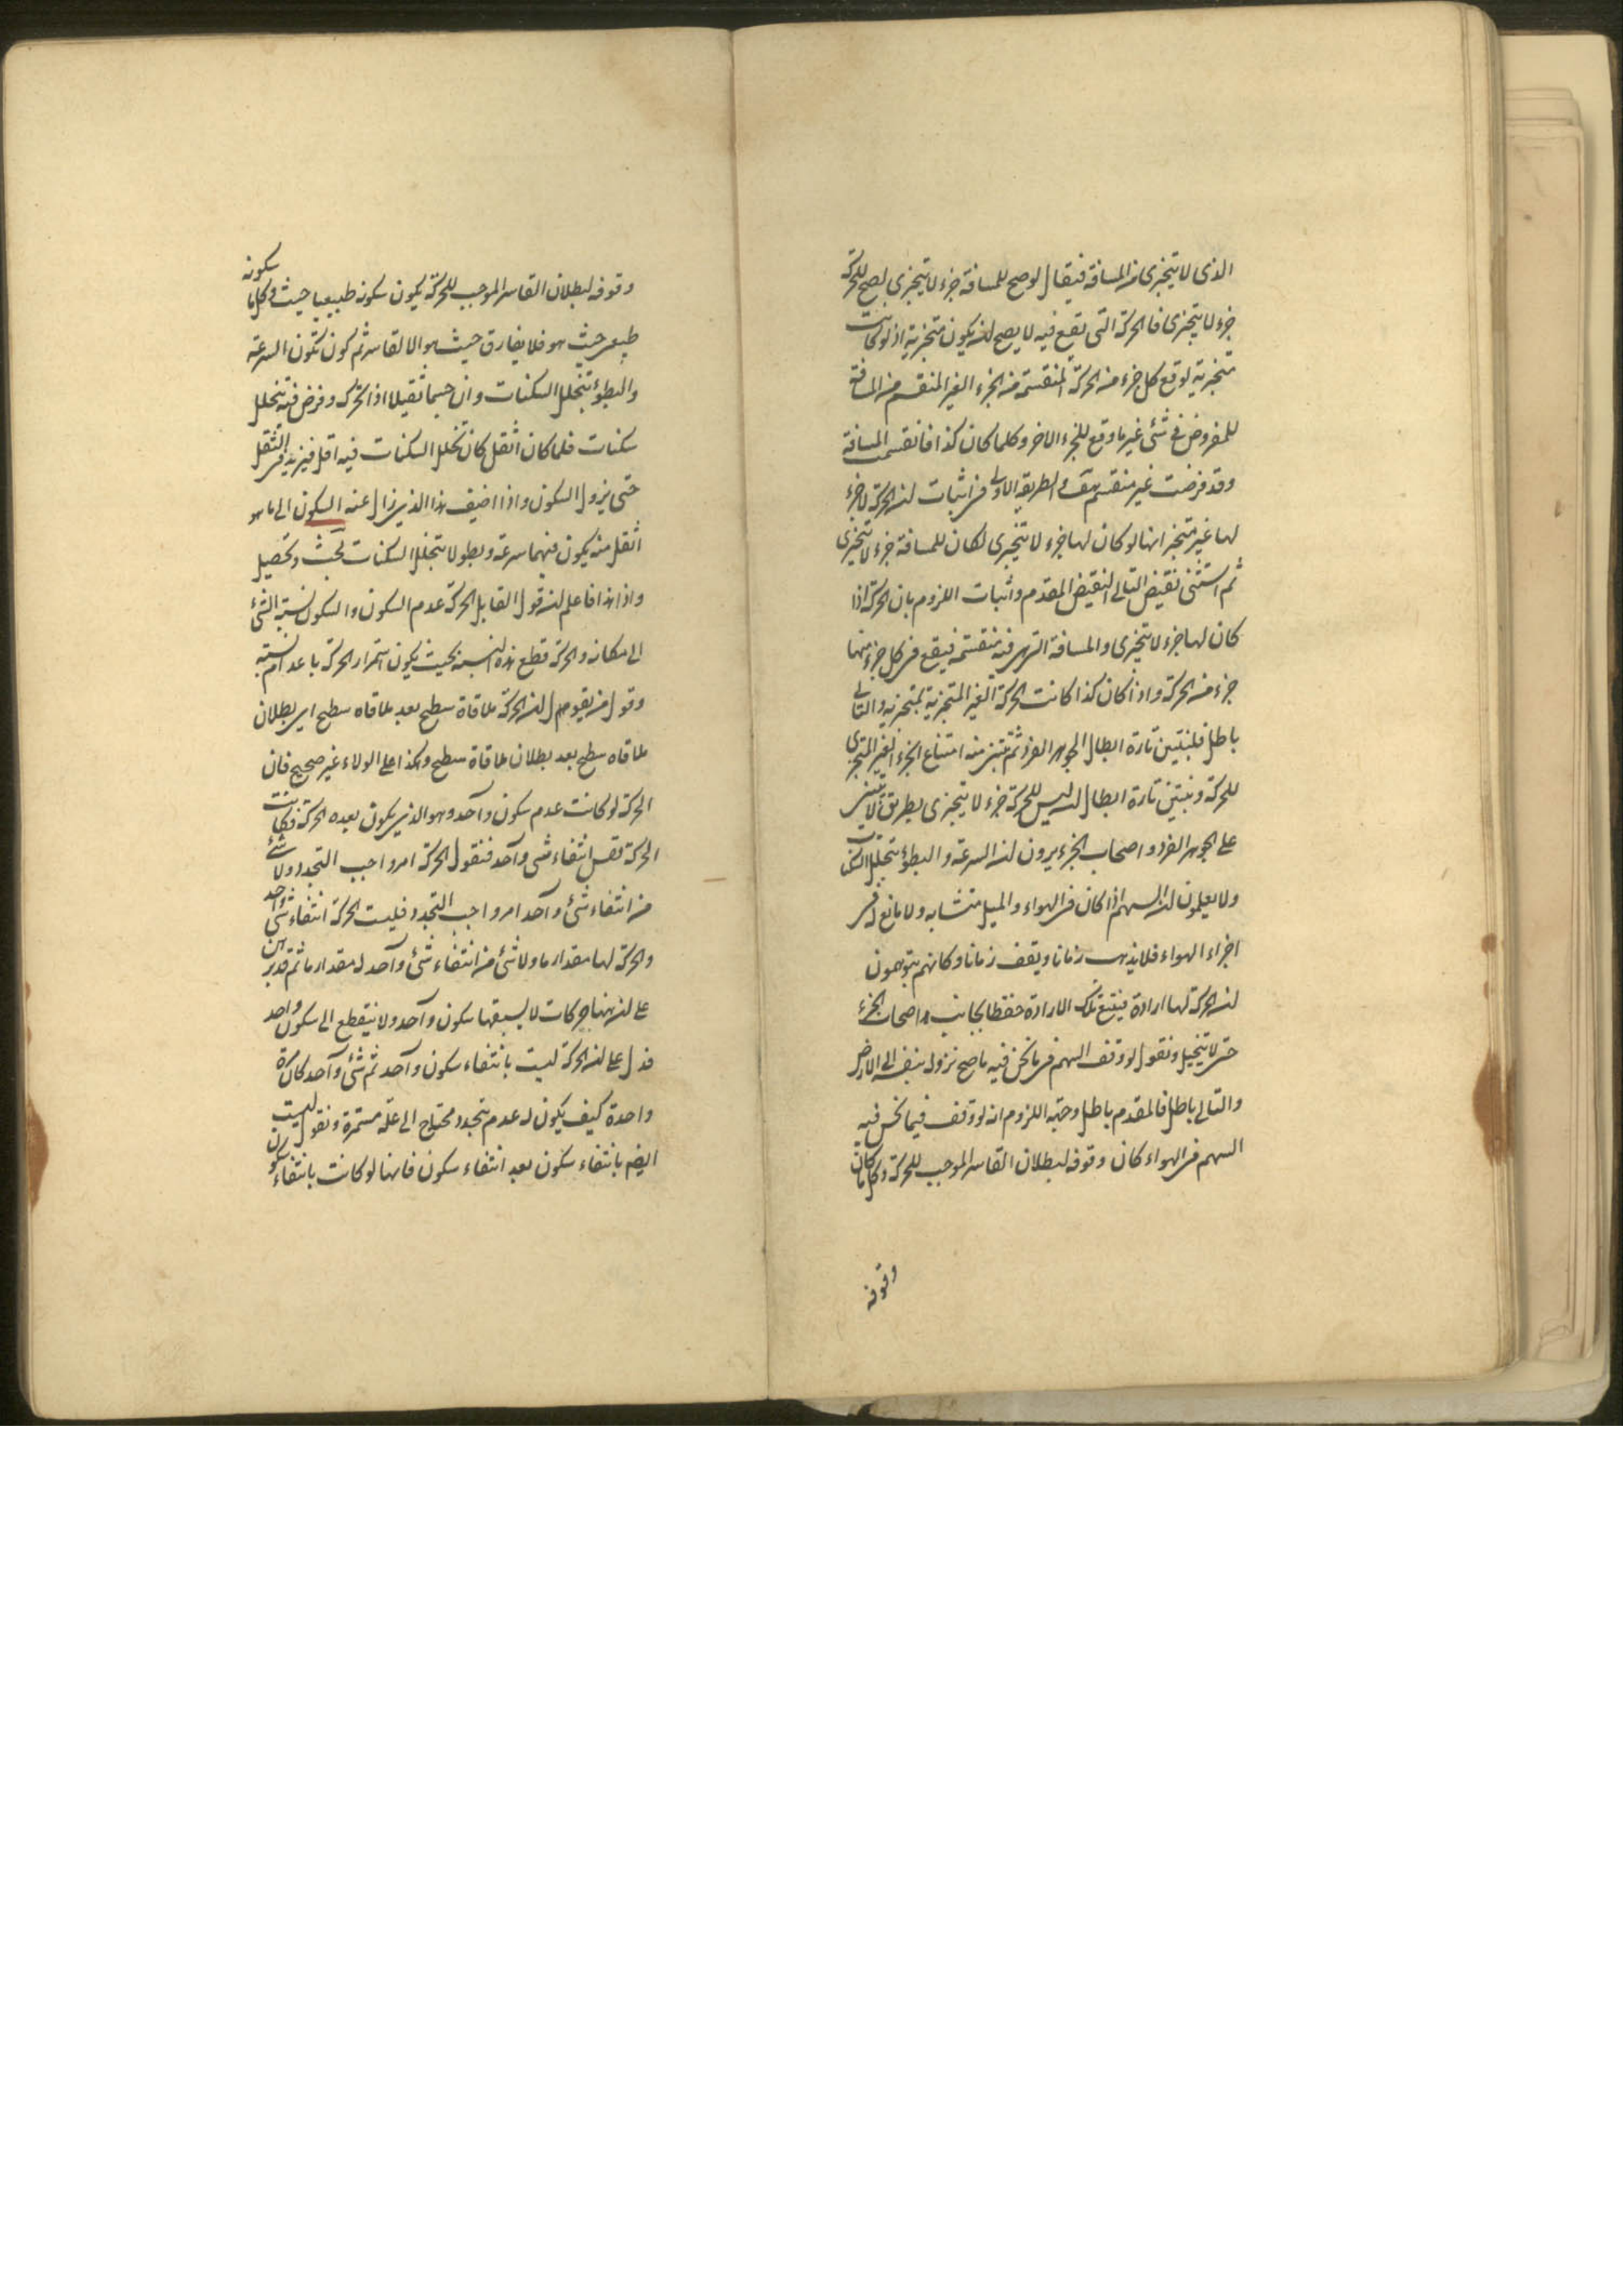 الذی لا یتجزی من المسافة فیقال لو صح للمسافة جزء لا یتجزی لصح للحرکة
جزء لا یتجزی فالحرکة التی تقع فیه لا یصح ان یکون متجزیة اذ لو کانت
متجزیة لوقع کل جزء من الحرکة المنقسمة من الجزء الغیر المنقسم من المسافة
المفروض فی شئ غیر ما وقع للجزء الاخر وکلما کان کذا فانقسمت المسافة
وقد فرضت غیر منقسم هف والطریقه الاولی فی اثبات ان الحرکة لا جزء
لها غیر متجز انها لو کان لها جزء لا یتجزی لکان للمسافة جزء لا یتجزی
ثم استثنی نقیض التالی لنقیض المقدم واثبات اللزوم بان الحرکة اذا
کان لها جزء لا یتجزی والمسافة التی هی فیه منقسمة فیقع فی کل جزء منها
جزء من الحرکة واذا کان کذا کانت الحرکة الغیر المتجزیة متجزیة والتالی
باطل فلنبتین تارة ابطال الجوهر الفرد ثم نتبین منه امتناع الجزء الغیر المتجزی
للحرکة ونبتین تارة ابطال ان لیس للحرکة جزء لا یتجزی بطریق لا یبتنی
علی الجوهر الفرد واصحاب الجزء یرون ان السرعة والبطؤ بتخلل السکنات
ولا یعلمون ان السهم اذا کان فی الهواء والمیل متشابه ولا مانع له فی
اجزاء الهواء فلا یذهب زمانا ویقف زمانا وکانهم یتوهمون
ان الحرکة لها ارادة فیتبع تلک الارادة حفظا لجانب اصحاب الجزء
حتی لا یتخیل ونقول لو وقف السهم فی ما نحن فیه ما صح نزوله بنفسه الی الارض
والتالی باطل فالمقدم باطل وجه اللزوم انه لو وقف فیما نحن فیه
السهم فی الهواء کان وقوفه لبطلان القاسر الموجب للحرکة وکل ما کان
وقوفه
وقوفه لبطلان القاسر الموجب للحرکة یکون سکونه طبیعیا حیث وکل ما سکونه
طبیعی حیث هو فلا یفارق حیث هو الا لقاسر ثم کون تکون السرعة
والبطؤ بتخلل السکنات وان جسما ثقیلا اذا تحرک وفرض فیه تخلل
سکنات فلما کان اثقل کان تخلل السکنات فیه اقل فیزید فی الثقل
حتی یزول السکون واذا اضیف هذا الذی زال عنه السکون الی ما هو
اثقل منه یکون فیهما سرعة وبطو لا بتخلل السکنات بحث وتحصیل
واذا هذا فاعلم ان قول القایل الحرکة عدم السکون والسکون نسبة الشئ
الی مکانه والحرکة قطع هذه النسبة بحیث یکون استمرار الحرکة باعدام نسبة
وقول من یقول ان الحرکة ملاقاة سطح بعد ملاقاه سطح ای بطلان
ملاقاه سطح بعد بطلان ملاقاة سطح وهکذا علی الولاء غیر صحیح فان
الحرکة لو کانت عدم سکون واحد وهو الذی یکون بعده الحرکة فکانت
الحرکة نفس انتفاء شی واحد فنقول الحرکة امر واجب التجدد ولا شئ
من انتفاء شئ واحد امر واجب التجدد فلیست الحرکة انتفاء شئ واحد
والحرکة لها مقدار ما ولا شئ من انتفاء شئ واحد له مقدار ما ثم قد برهن
علی ان ههنا حرکات لا یسبقها سکون واحد ولا ینقطع الی سکون واحد
فدل علی ان الحرکة لیست بانتفاء سکون واحد ثم شئ واحد کان مرة
واحدة کیف یکون له عدم متجدد محتاج الی علة مستمرة ونقول لیست
ایضا بانتفاء سکون بعد انتفاء سکون فانها لو کانت بانتفاء سکون